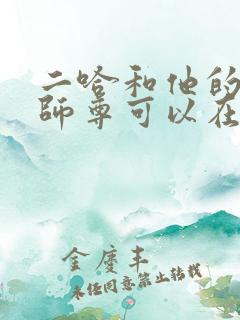 二哈和他的
師尊可以在
金慶丰
未经同意禁止转载